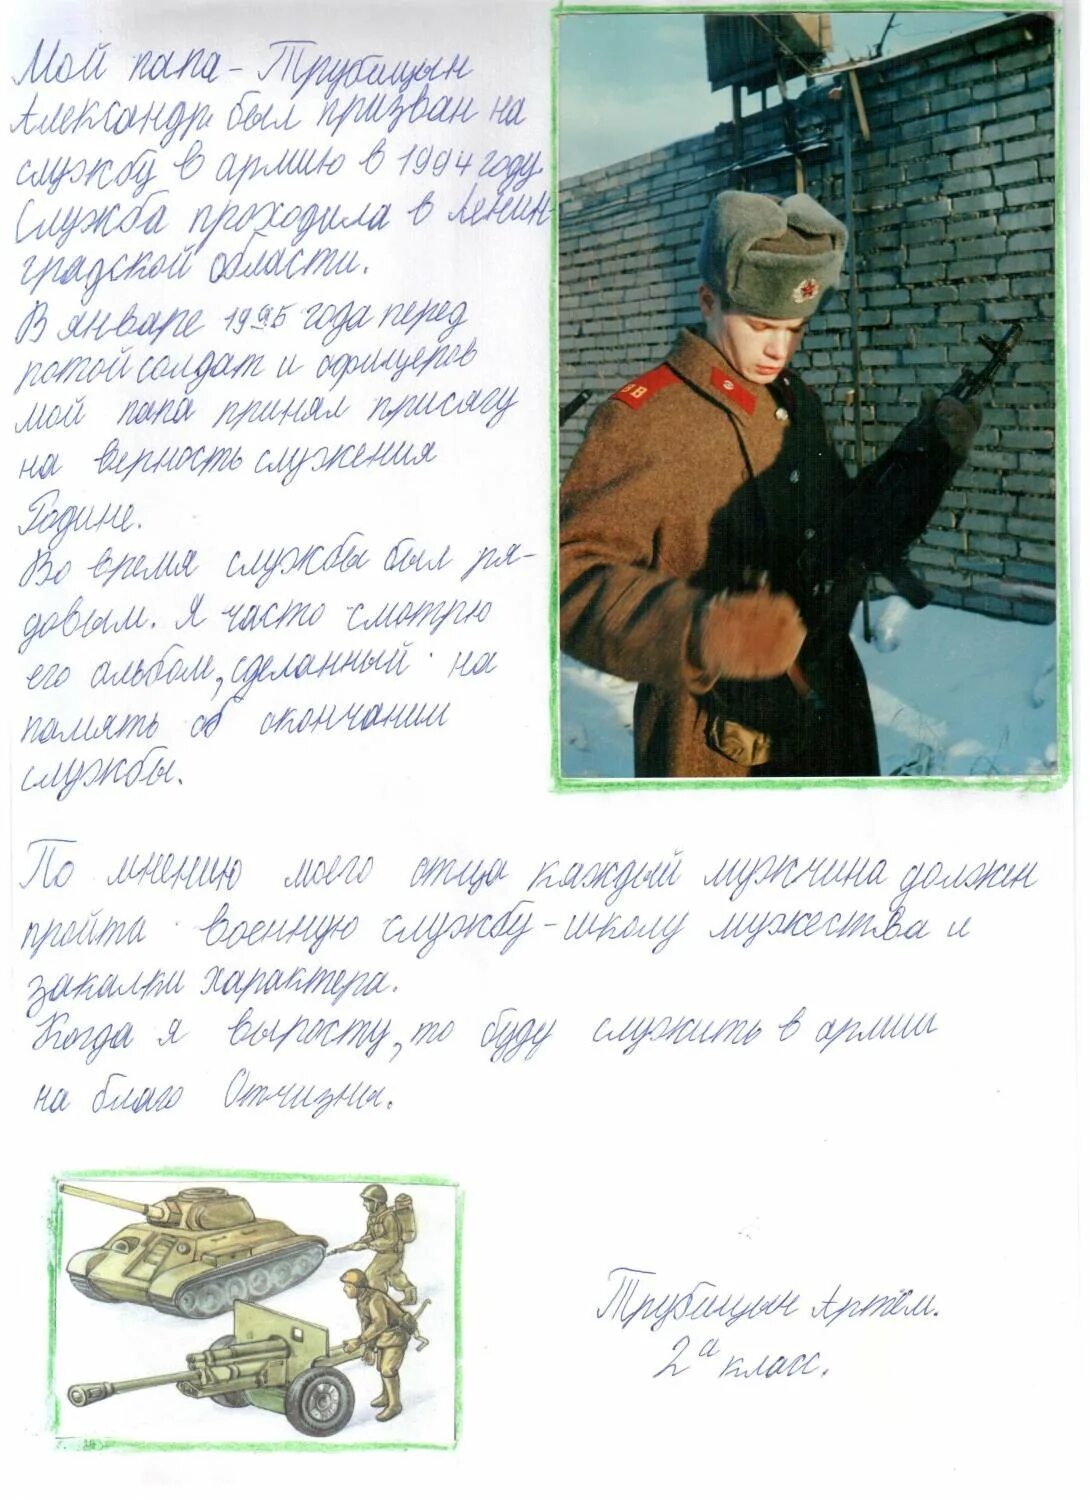 Мой папа - Трубицын
Александр был призван на
службу в армию в 1994 году.
Служба проходила в Ленин-
градской области.
В январе 1995 года перед
ротой солдат и офицеров
мой папа принял присягу
на верность служения
Родине.
Во время службы был ря-
довым. Я часто смотрю
его альбом, сделанный на
память об окончании
службы.
По мнению моего отца каждый мужчина должен
пройти военную службу - школу мужества и
закалки характера.
Когда я вырасту, то буду служить в армии
на благо Отчизны.
Трубицын Артём.
2а класс.